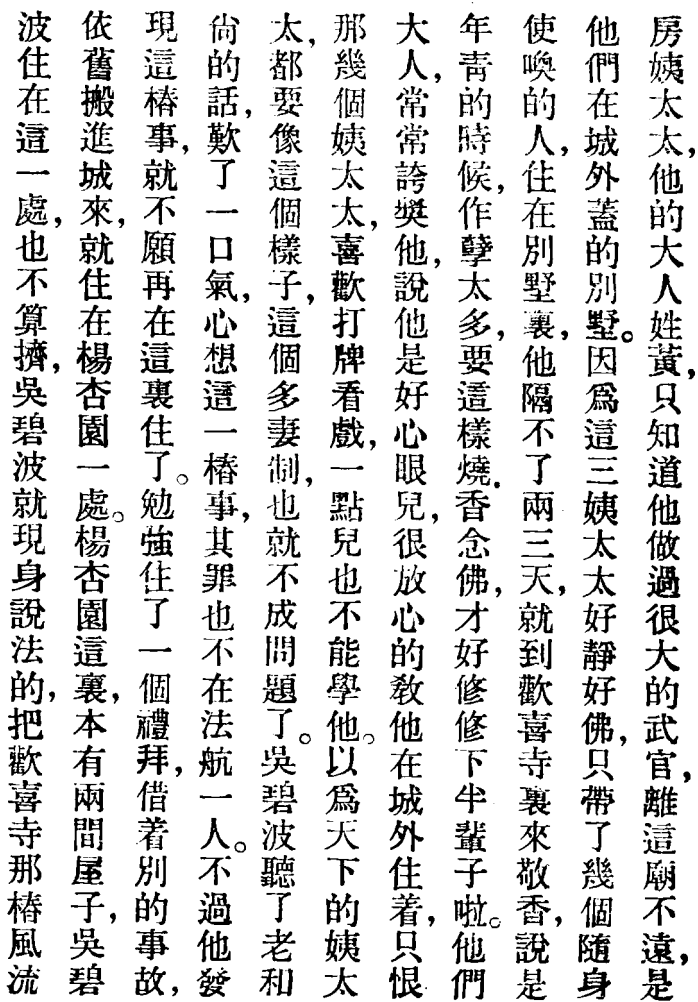 房姨太太，他的大人姓黃，只知道他做過很大的武官，離這廟不遠，是
他們在城外蓋的別墅。因爲這三姨太太好靜好佛，只帶了幾個隨身
使喚的人，住在別墅裏，他隔不了兩三天，就到歡喜寺裏來敬香，說是
年靑的時候，作孽太多，要這樣燒．香念佛，才好修修下半輩子啦。他們
大人，常常誇獎他，說他是好心眼兒，很放心的敎他在城外住着，只恨
那幾個姨太太，喜歡打牌看戲，一點兒也不能學他。以爲天下的姨太
太，都要像這個樣子，這個多妻制，也就不成問題了。吳碧波聽了老和
尙的話，歎了一口氣，心想這一樁事，其罪也不在法航一人。不過他發
現這樁事，就不願再在這裏住了。勉強住了一個禮拜，借着別的事故，
依舊搬進城來，就住在楊杏園一處。楊杏園這裏，本有兩間屋子，吳碧
波住在這一處，也不算擠，吳碧波就現身說法的，把歡喜寺那樁風流